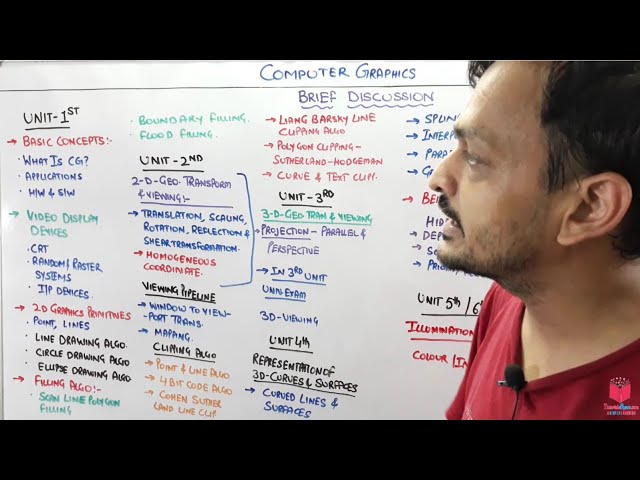 COMPUTER GRAPHICS
BRIEF DISCUSSION
UNIT-1ST
→ BASIC CONCEPTS:-
• WHAT IS CG?
• APPLICATIONS
• H/W & S/W
→ VIDEO DISPLAY
DEVICES
• CRT
• RANDOM & RASTER
SYSTEMS
• I/P DEVICES.
→ 2D GRAPHICS PRIMITIVES
• POINT, LINES
• LINE DRAWING ALGO.
• CIRCLE DRAWING ALGO
• ELLIPSE DRAWING ALGO
→ FILLING ALGO:-
• SCAN LINE POLYGON
FILLING
• BOUNDARY FILLING.
• FLOOD FILLING.
UNIT-2ND
2-D-GEO. TRANSFORM
& VIEWING:-
→ TRANSLATION, SCALING,
ROTATION, REFLECTION &
SHEAR TRANSFORMATION.
→ HOMOGENEOUS
COORDINATE.
VIEWING PIPELINE
→ WINDOW TO VIEW-
PORT TRANS.
→ MAPANG.
CLIPPING ALGO
→ POINT & LINE ALGO
→ 4 BIT CODE ALGO
→ COHEN SUTHER
LAND LINE CLIP.
→ LIANG BARSKY LINE
CLIPPING ALGO
→ POLYGON CLIPPING-
SUTHERLAND-HODGEMAN
→ CURVE & TEXT CLIP.
UNIT-3RD
3-D-GEO.TRAN & VIEWING
→ PROJECTION- PARALLEL &
PERSPECTIVE
→ IN 3RD UNIT
UNIV. EXAM
3D-VIEWING
UNIT 4th
REPRESENTATION OF
3D-CURVES & SURFACES
→ CURVED LINES &
SURFACES
→ SPLIN
→ INTERP
→ PARA
HID
→ DEP
UNIT 5th / 6
ILLUMINATION
COLOUR